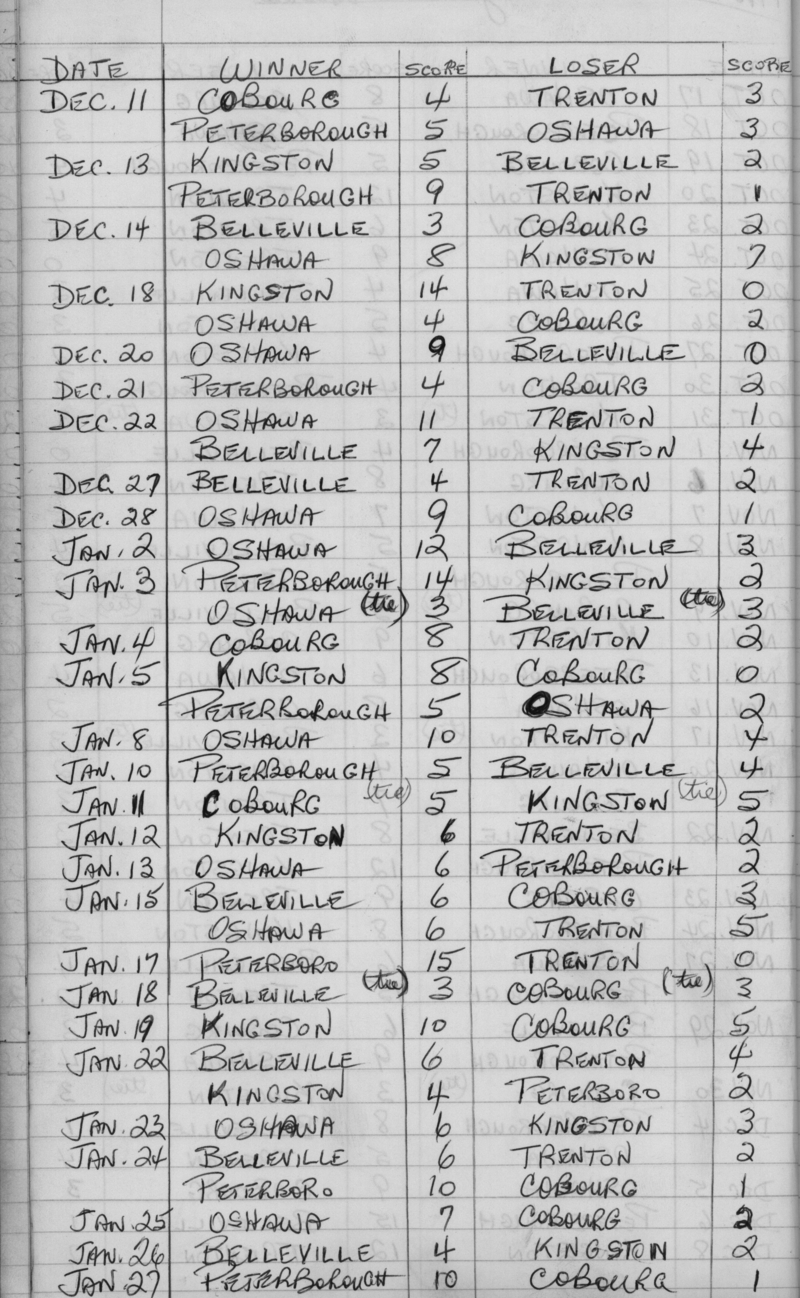 DATE WINNER SCORE LOSER SCORE
DEC. 11 COBOURG 4 TRENTON 3
PETERBOROUGH 5 OSHAWA 3
DEC. 13 KINGSTON 5 BELLEVILLE 2
PETERBOROUGH 9 TRENTON 1
DEC. 14 BELLEVILLE 3 COBOURG 2
OSHAWA 8 KINGSTON 7
DEC. 18 KINGSTON 14 TRENTON 0
OSHAWA 4 COBOURG 2
DEC. 20 OSHAWA 9 BELLEVILLE 0
DEC. 21 PETERBOROUGH 4 COBOURG 2
DEC. 22 OSHAWA 11 TRENTON 1
BELLEVILLE 7 KINGSTON 4
DEC. 27 BELLEVILLE 4 TRENTON 2
DEC. 28 OSHAWA 9 COBOURG 1
JAN. 2 OSHAWA 12 BELLEVILLE 3
JAN. 3 PETERBOROUGH 14 KINGSTON 2
OSHAWA (tie) 3 BELLEVILLE (tie) 3
JAN. 4 COBOURG 8 TRENTON 2
JAN. 5 KINGSTON 8 COBOURG 0
PETERBOROUGH 5 OSHAWA 2
JAN. 8 OSHAWA 10 TRENTON 4
JAN. 10 PETERBOROUGH 5 BELLEVILLE 4
JAN. 11 COBOURG (tie) 5 KINGSTON (tie) 5
JAN. 12 KINGSTON 6 TRENTON 2
JAN. 13 OSHAWA 6 PETERBOROUGH 2
JAN. 15 BELLEVILLE 6 COBOURG 3
OSHAWA 6 TRENTON 5
JAN. 17 PETERBORO 15 TRENTON 0
JAN 18 BELLEVILLE (tie) 3 COBOURG (tie) 3
JAN. 19 KINGSTON 10 COBOURG 5
JAN. 22 BELLEVILLE 6 TRENTON 4
KINGSTON 4 PETERBORO 2
JAN. 23 OSHAWA 6 KINGSTON 3
JAN. 24 BELLEVILLE 6 TRENTON 2
PETERBORO 10 COBOURG 1
JAN. 25 OSHAWA 7 COBOURG 2
JAN. 26 BELLEVILLE 4 KINGSTON 2
JAN 27 PETERBOROUGH 10 COBOURG 1